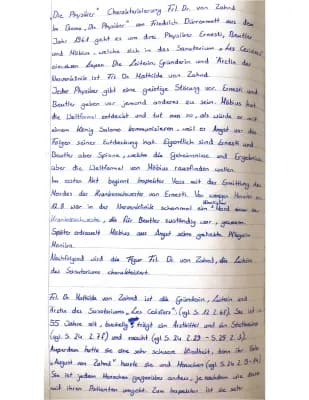 „Die Physiker" Charakterisierung Frl. Dr. von Zahnd
Im Drama „Die Physiker" von Friedrich Dürrenmatt aus dem
Jahr 1961 geht es um drei Physiker Ernesti, Beutler
und Möbius, welche sich in das Sanatorium „Les Cerisiers"
einweisen lassen. Die Leiterin, Gründerin und Ärztin des
Nervenklinik ist Frl. Dr. Mathilde von Zahnd.
Jeder Physiker gibt eine geistige Störung vor. Ernesti und
Beutler geben vor jemand anderes zu sein. Möbius hat
die Weltformel entdeckt und tut nun so, als würde er mit
einem König Salomo kommunizieren, weil er Angst vor den
Folgen seiner Entdeckung hat. Eigentlich sind Ernesti und
Beutler aber Spione, welche die Geheimnisse und Ergebnisse
über die Weltformel von Möbius rausfinden wollen.
Im ersten Akt beginnt Inspektor Voss mit der Ermittlung des
Mordes der Krankenschwester von Ernesti. Vor wenigen Monaten am
12.8. war in der Nervenklinik schonmal ein Mord einer
Krankenschwester, die für Beutler zuständig war, gewesen.
Später erdrosselt Möbius aus Angst seine geliebte Pflegerin
Monika.
Nachfolgend wird die Figur Frl. Dr. von Zahnd, die Leiterin
des Sanatoriums charakterisiert.
Frl. Dr. Mathilde von Zahnd ist die Gründerin, Leiterin und
Ärztin des Sanatoriums „Les Cerisiers". (vgl. S. 12 Z. 6f). Sie ist
55 Jahre alt, bucklig, trägt ein Ärztekittel und ein Stethoskop
(vgl. S. 24 Z. 7f) und raucht (vgl. S. 24 Z. 29 - S. 25 Z. 3).
Außerdem hatte sie eine sehr schwere Kindheit, denn ihr Vater
„August von Zahnd" hasste sie und Menschen (vgl. S. 24 Z. 9-14).
Sie ist jedem Menschen gegenüber anders, je nachdem wie diese
mit ihren Patienten umgeht. Zum Inspektor ist sie sehr